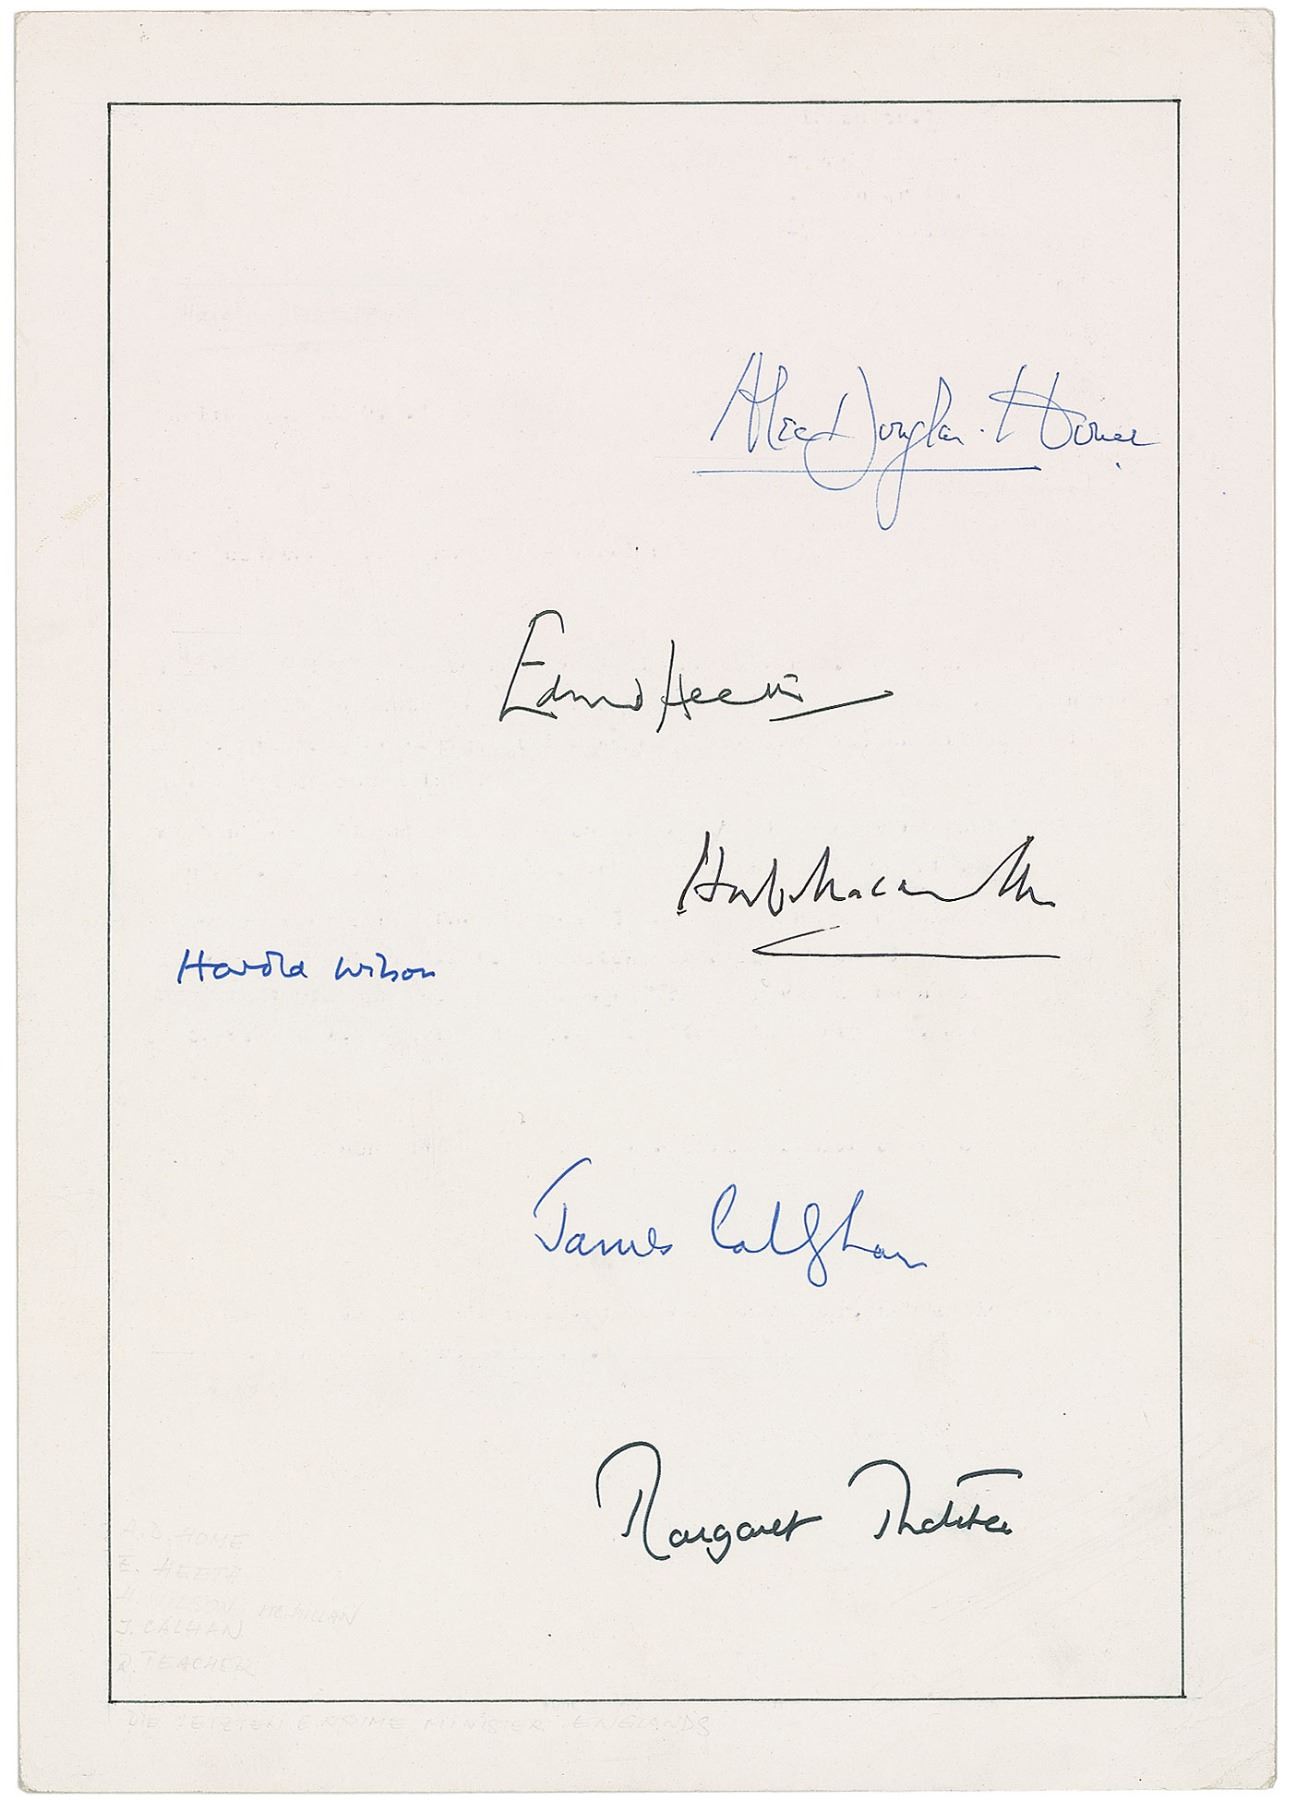 Alec Douglas-Home
Edward Heath
Harold Macmillan
Harold Wilson
James Callaghan
Margaret Thatcher
A.D. HOME
E. HEETH
H. WILSON MCMILLAN
J. CALHAN
R. TEACHER
DIE LETZTEN 6 PRIME MINISTER ENGLANDS